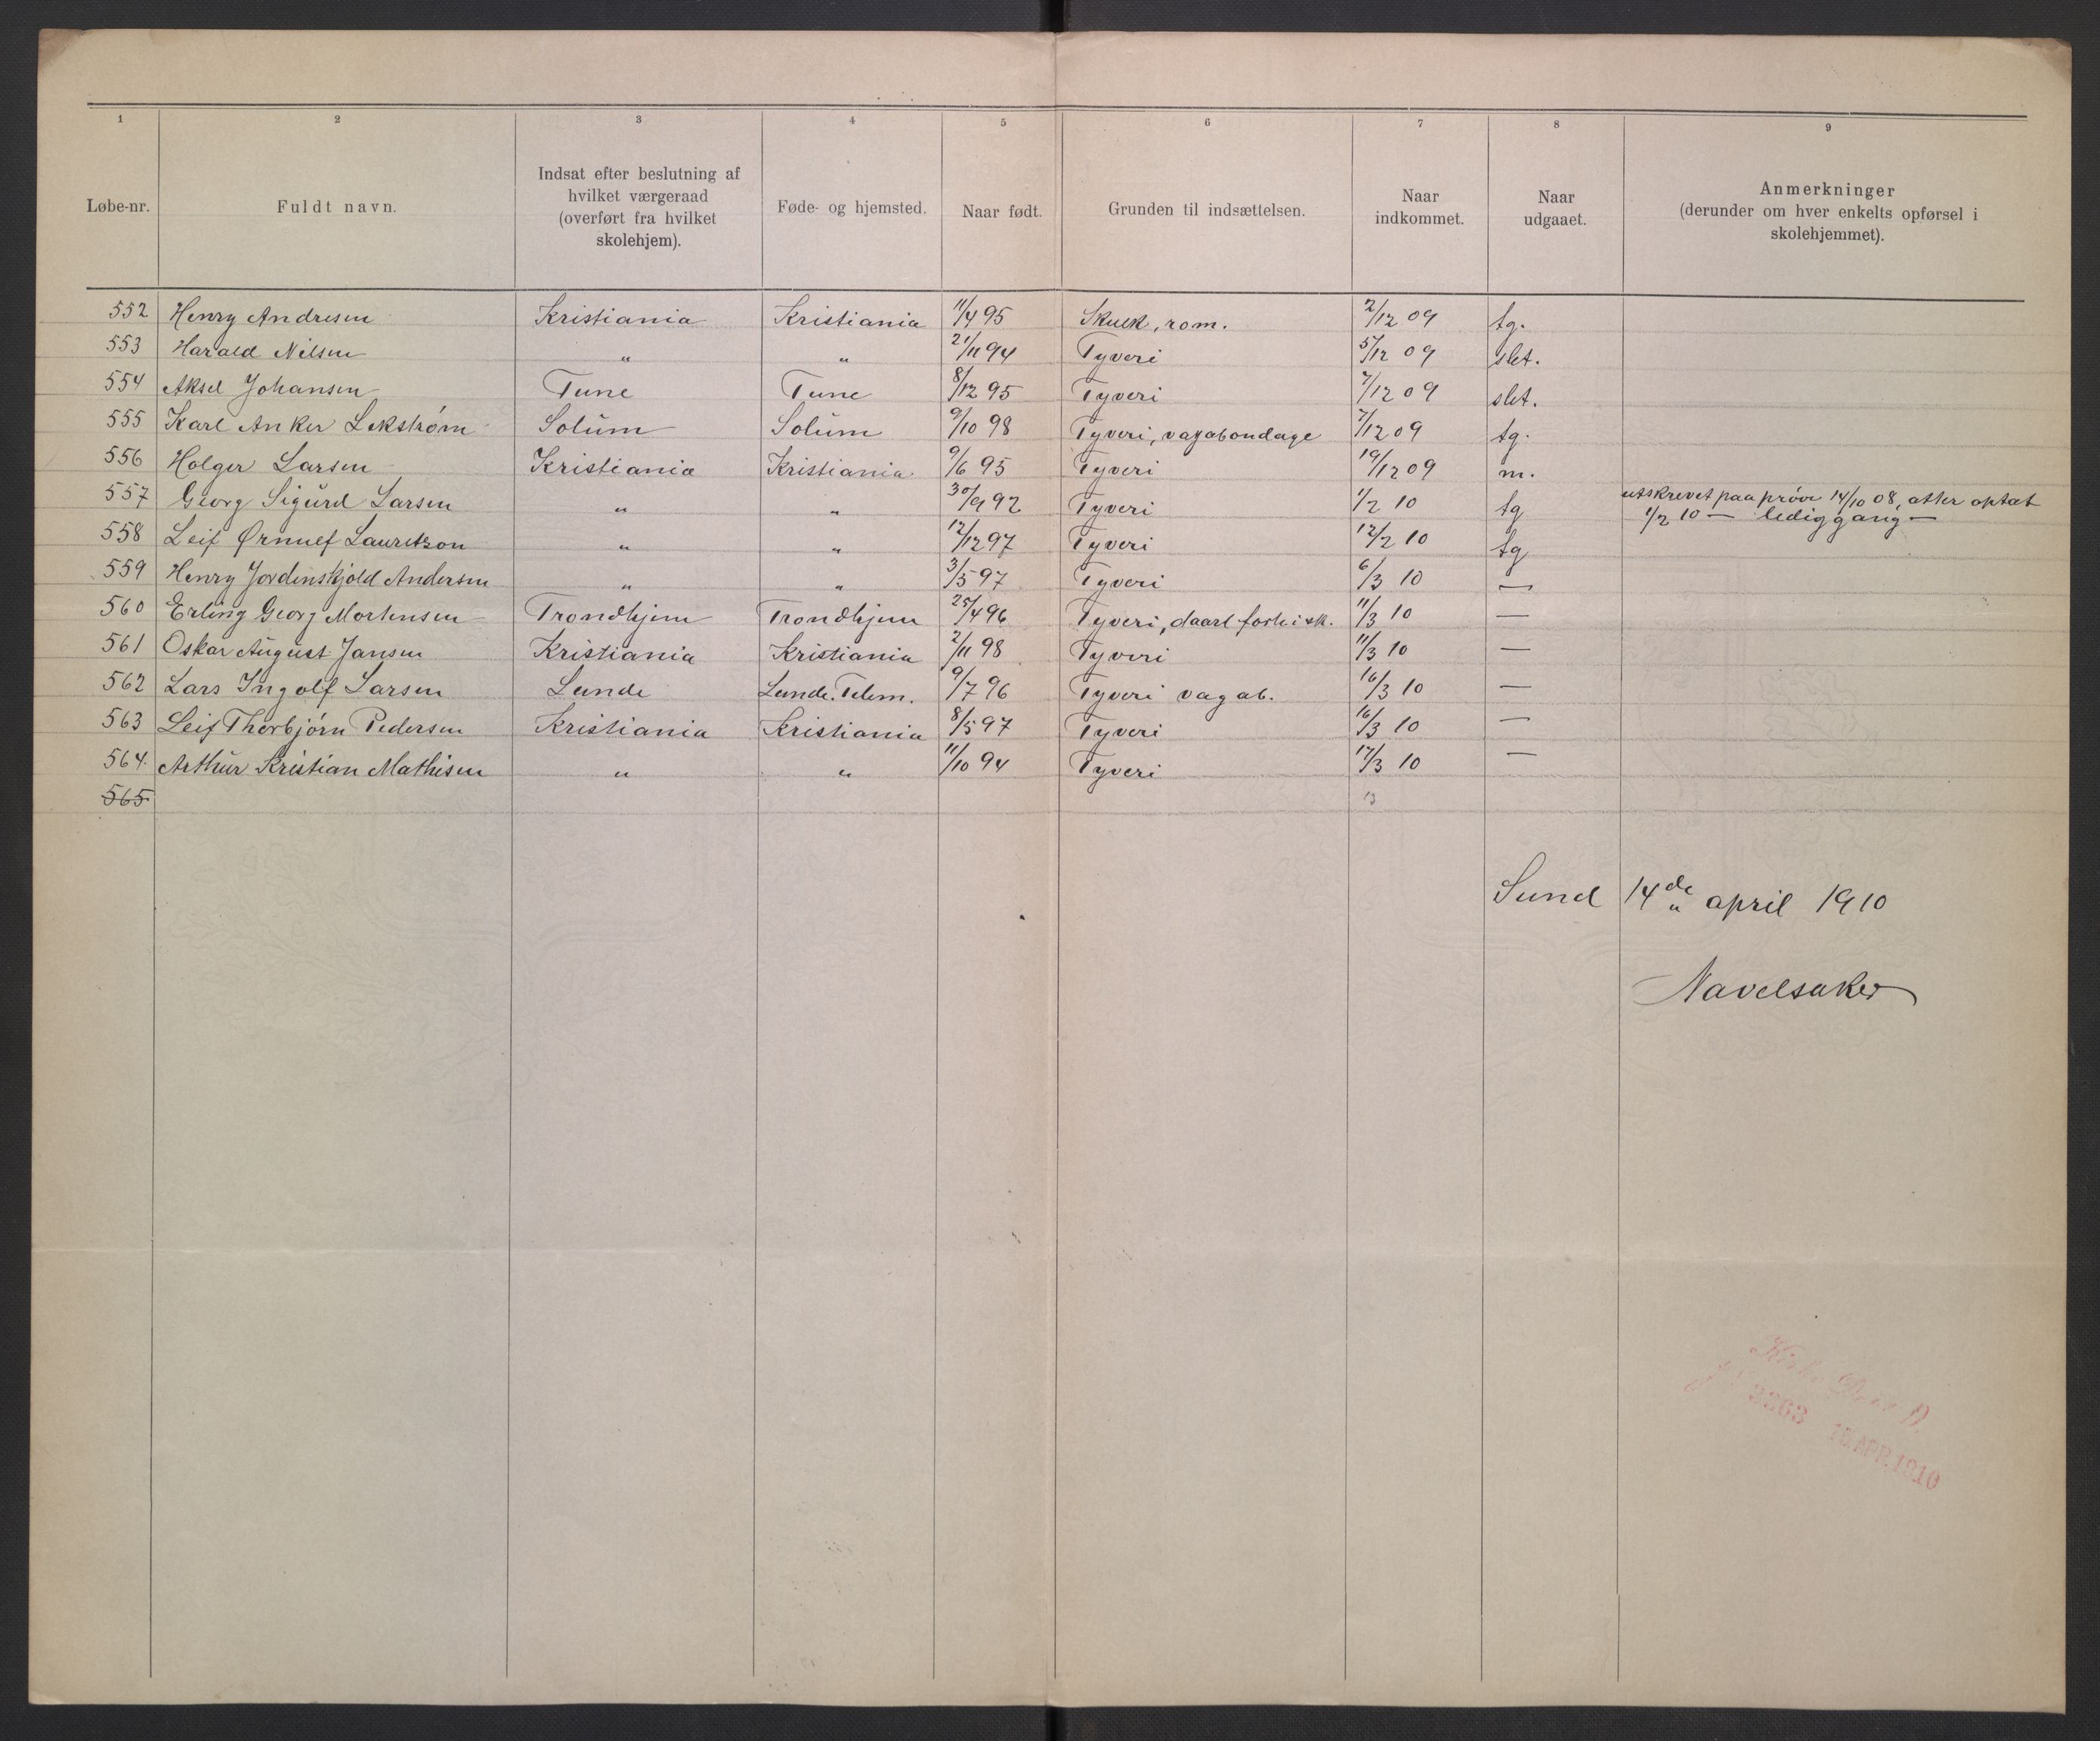 1 2 3 4 5 6 7 8 9
Løbe-nr. Fuldt navn. Indsat efter beslutning af hvilket værgeraad (overført fra hvilket skolehjem). Føde- og hjemsted. Naar født. Grunden til indsættelsen. Naar indkommet. Naar udgaaet. Anmerkninger (derunder om hver enkelts opførsel i skolehjemmet).
552 Henry Andresen Kristiania Kristiania 11/4 95 Skulk, rom. 2/12 09 tg.
553 Harald Nilsen " " 21/11 94 Tyveri 5/12 09 slet.
554 Aksel Johansen Tune Tune 8/12 95 Tyveri 7/12 09 slet.
555 Karl Anker Lekstrøm Solum Solum 9/10 98 Tyveri, vagabondage 7/12 09 tg.
556 Holger Larsen Kristiania Kristiania 9/6 95 Tyveri 19/12 09 m.
557 Georg Sigurd Larsen " " 30/9 92 Tyveri 1/2 10 tg utskrevet paa prøve 14/10 08, atter optat
1/2 10 — lediggang —
558 Leif Ørnulf Lauritzon " " 12/12 97 Tyveri 12/2 10 tg
559 Henry Jordenskjold Andersen " " 3/5 97 Tyveri 6/3 10 —
560 Erling Georg Mortensen Trondhjem Trondhjem 25/4 96 Tyveri, daarl forh i sk. 11/3 10 —
561 Oskar August Jansen Kristiania Kristiania 2/11 98 Tyveri 11/3 10 —
562 Lars Ingolf Larsen Lunde Lunde. Telem. 9/7 96 Tyveri vagab. 16/3 10 —
563 Leif Thorbjørn Pedersen Kristiania Kristiania 8/5 97 Tyveri 16/3 10 —
564. Arthur Kristian Mathisen " " 11/10 94 Tyveri 17/3 10 —
565 13
Sund 14de april 1910
Navelsaker
3263 15 APR. 1910